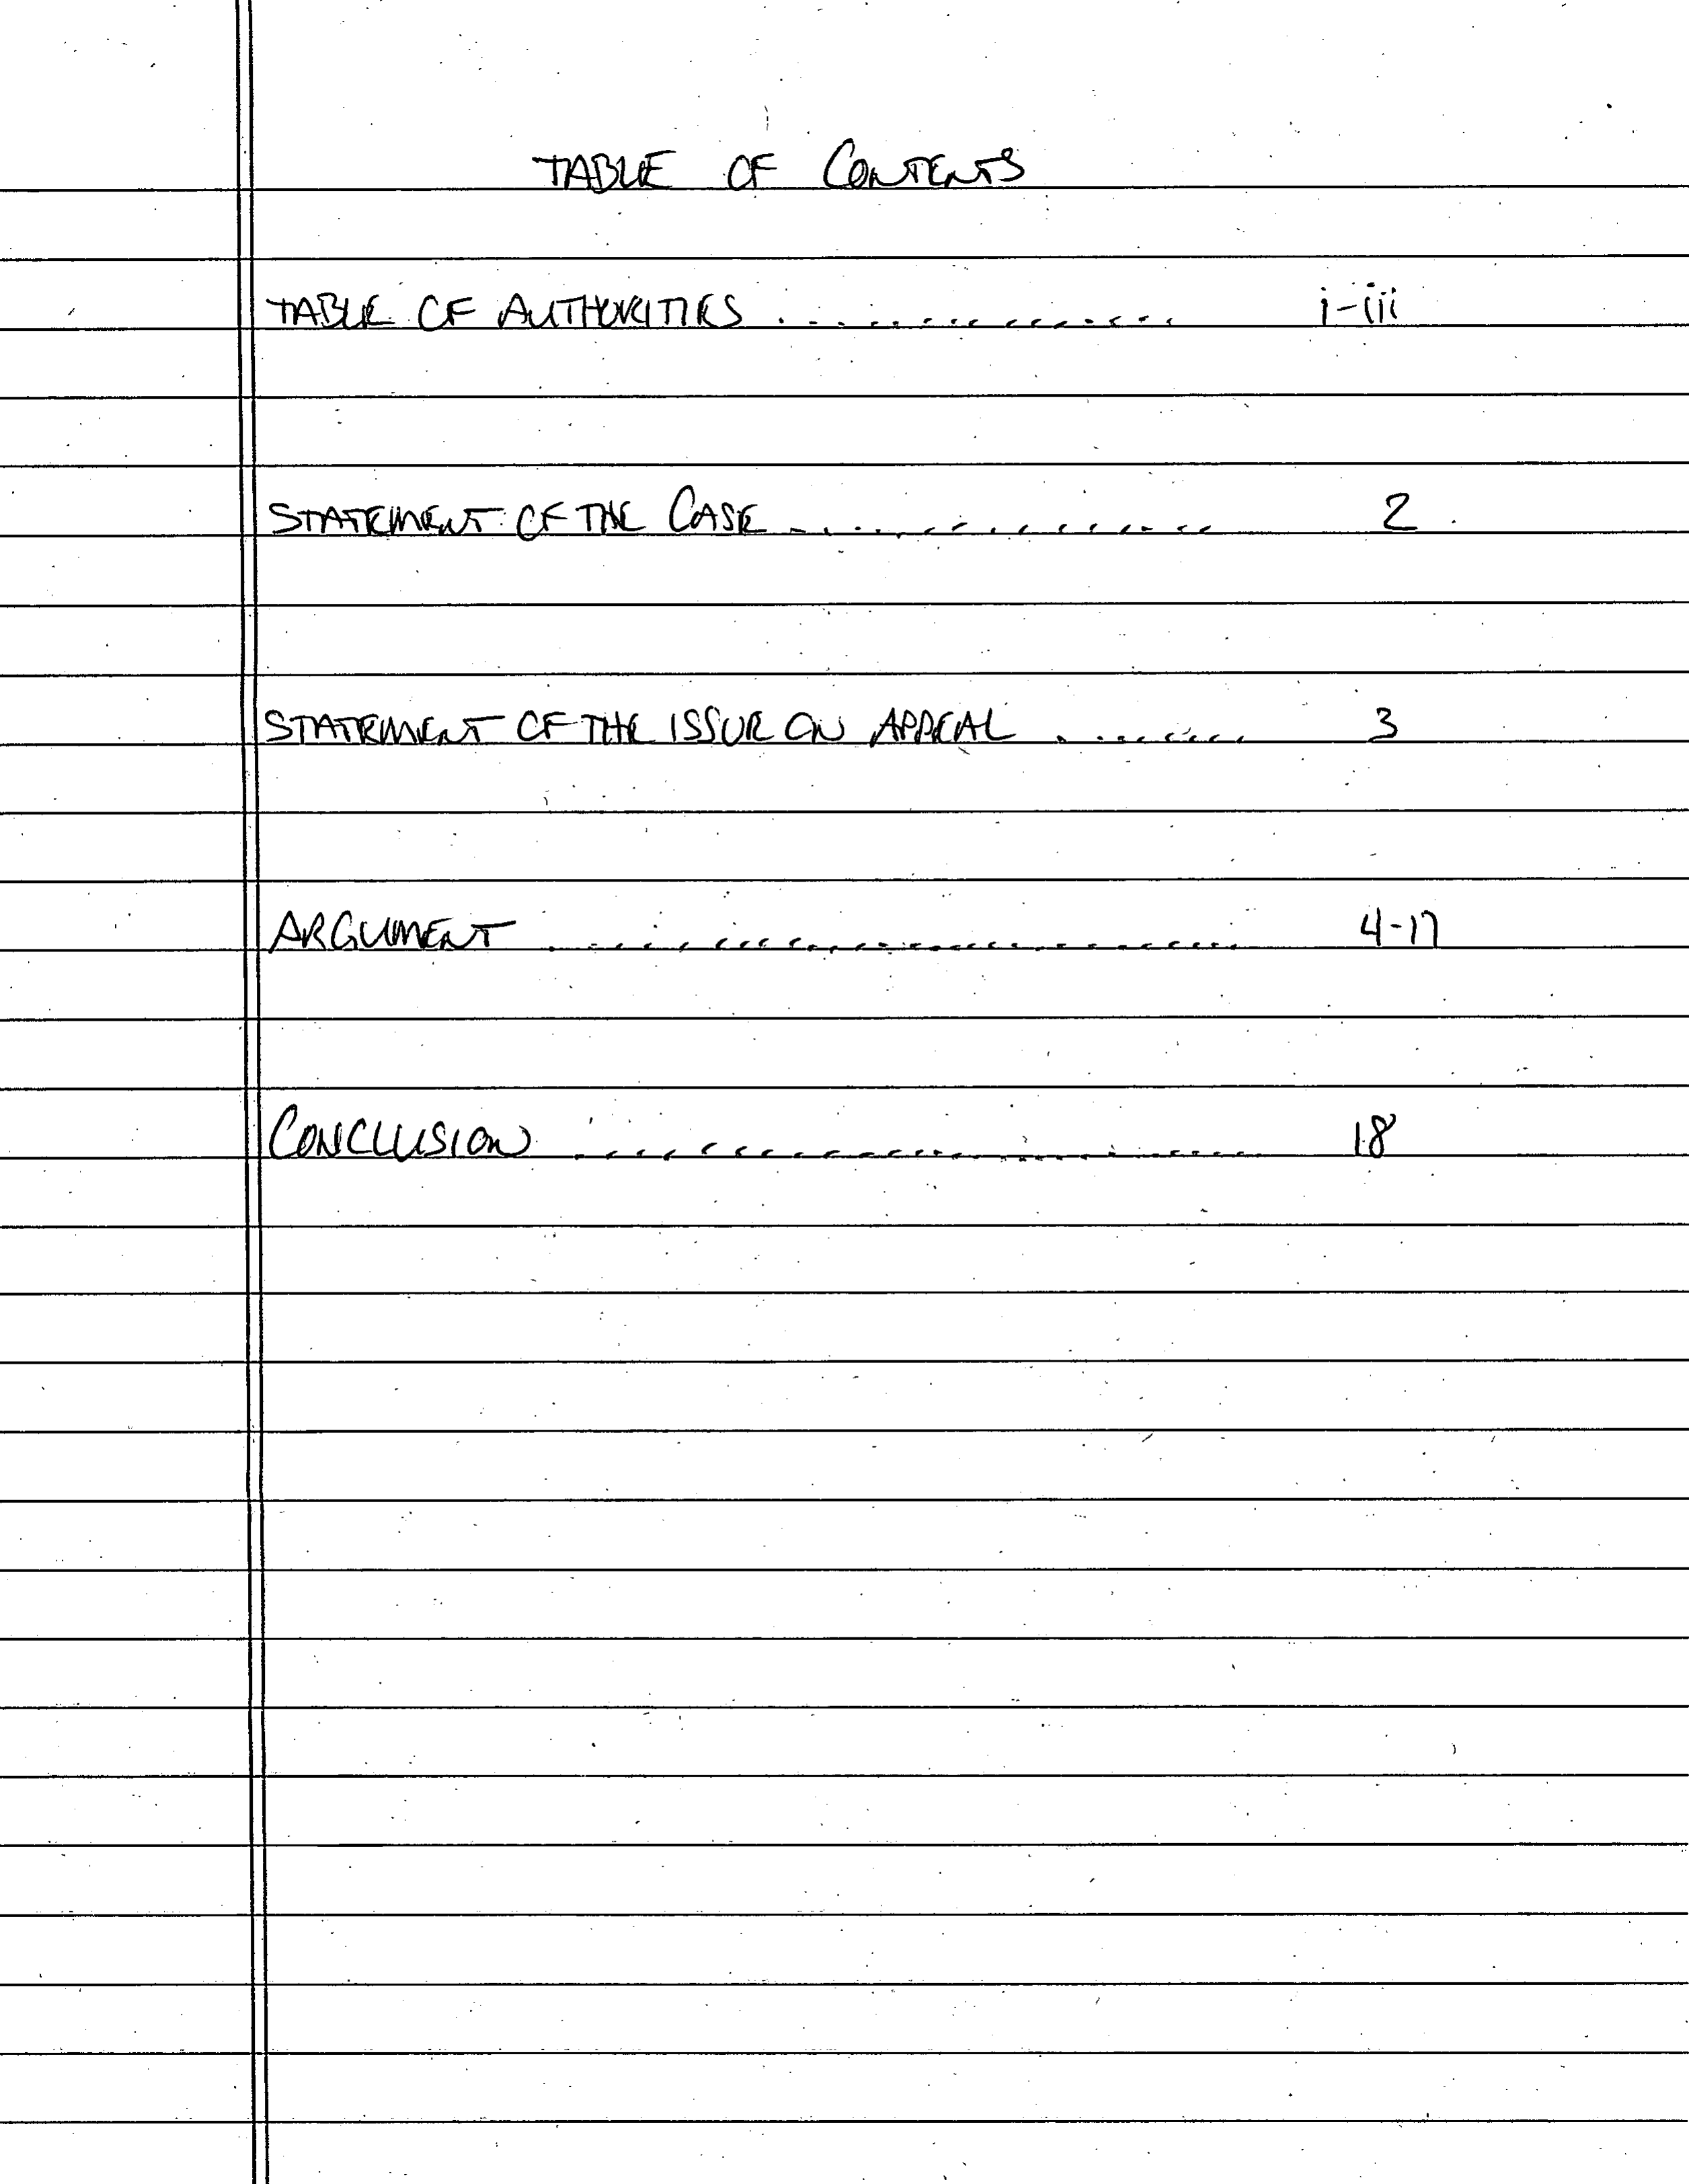 TABLE OF CONTENTS
TABLE OF AUTHORITIES .................. i-iii
STATEMENT OF THE CASE .................. 2
STATEMENT OF THE ISSUE ON APPEAL ......... 3
ARGUMENT .............................. 4-17
CONCLUSION .............................. 18